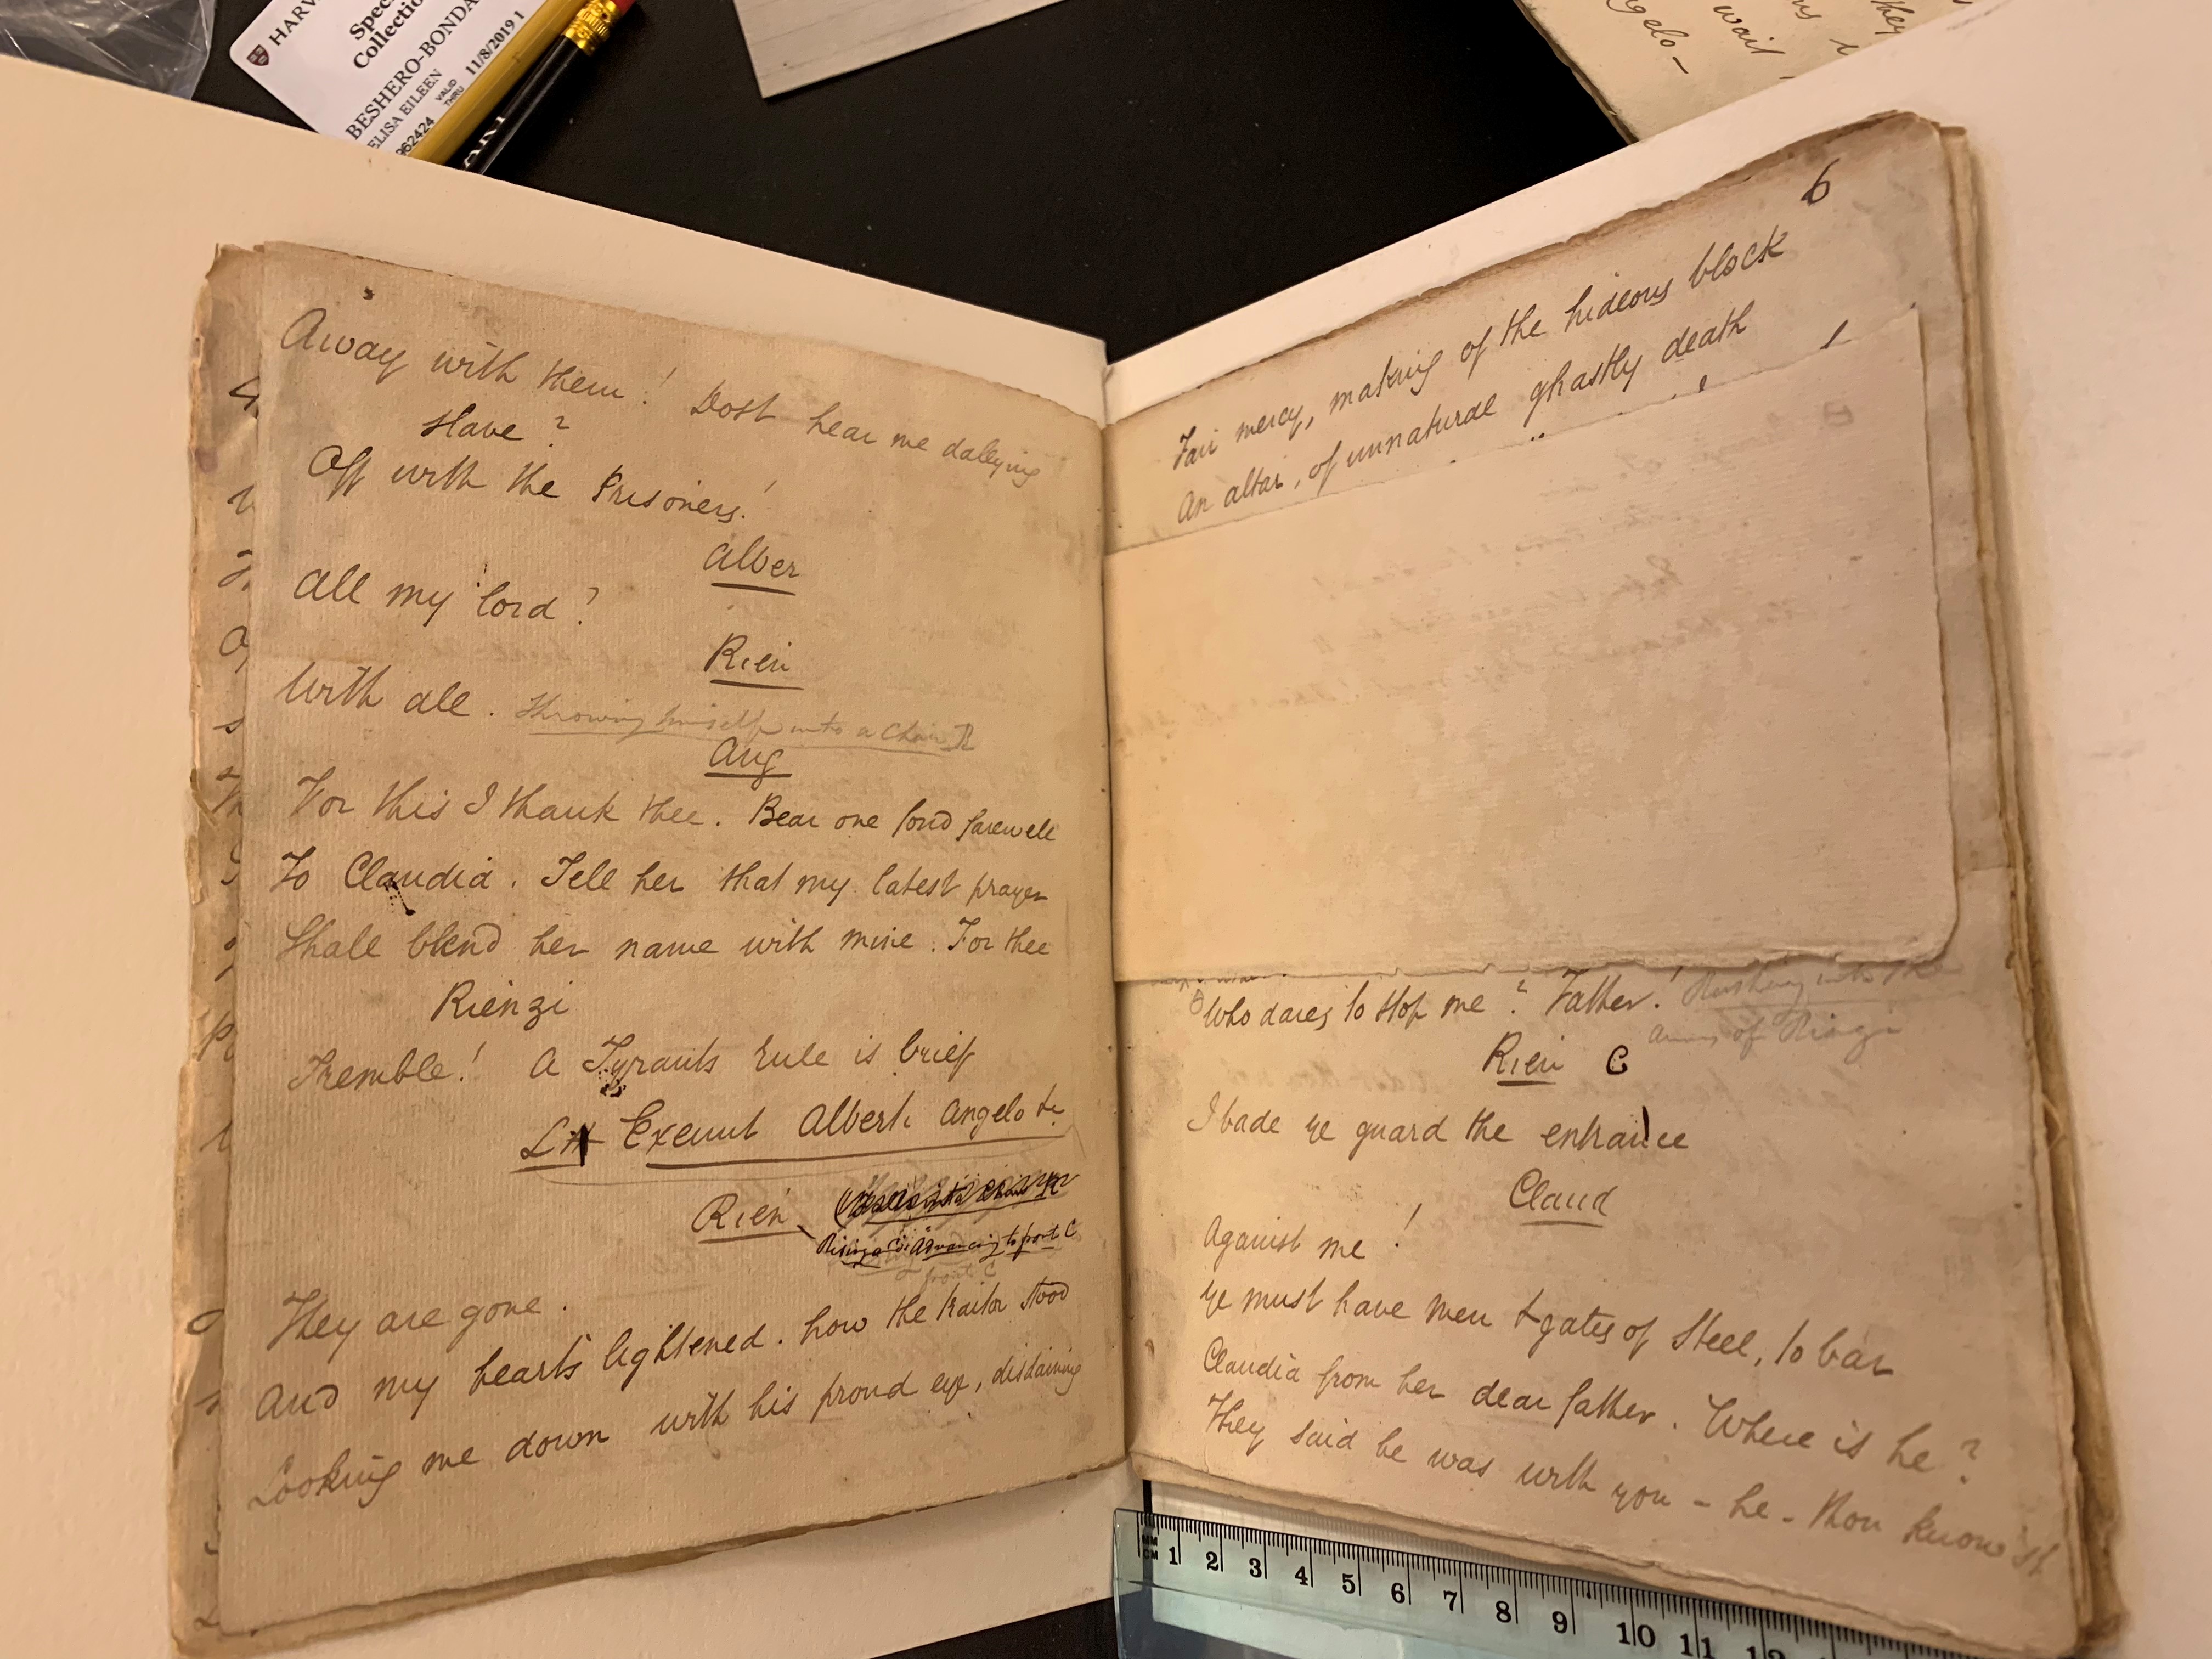 HARV
Spec
Collectio
BESHERO-BONDA
ELISA EILEEN
VALID
THRU
11/8/2019 1
962424
they
wait
gelo -
Away with them! Dost hear me dallying
Slave?
Off with the Prisoners!
Alber
All my lord?
Rien
With all. Throwing himself into a Chair R
Ang
For this I thank thee. Bear one fond farewell
To Claudia. Tell her that my latest prayer
Shall blend her name with mine. For thee
Rienzi
Tremble! A Tyrants rule is brief
LH Exeunt Albert. Angelo &c
Rien
Rising & Advancing to front C
front C
They are gone.
And my hearts lightened. how the traitor stood
Looking me down with his proud eye, disdaining
6
Fair mercy, making of the hideous block
An altar, of unnatural ghastly death
Who dares to stop me? Father! Rushing into the
arms of Rienzi
Rien C
I bade ye guard the entrance
Claud
Against me!
Ye must have men & gates of Steel, to bar
Claudia from her dear father. Where is he?
They said he was with you - he - thou know'st
MM
CM
1 2 3 4 5 6 7 8 9 10 11 12